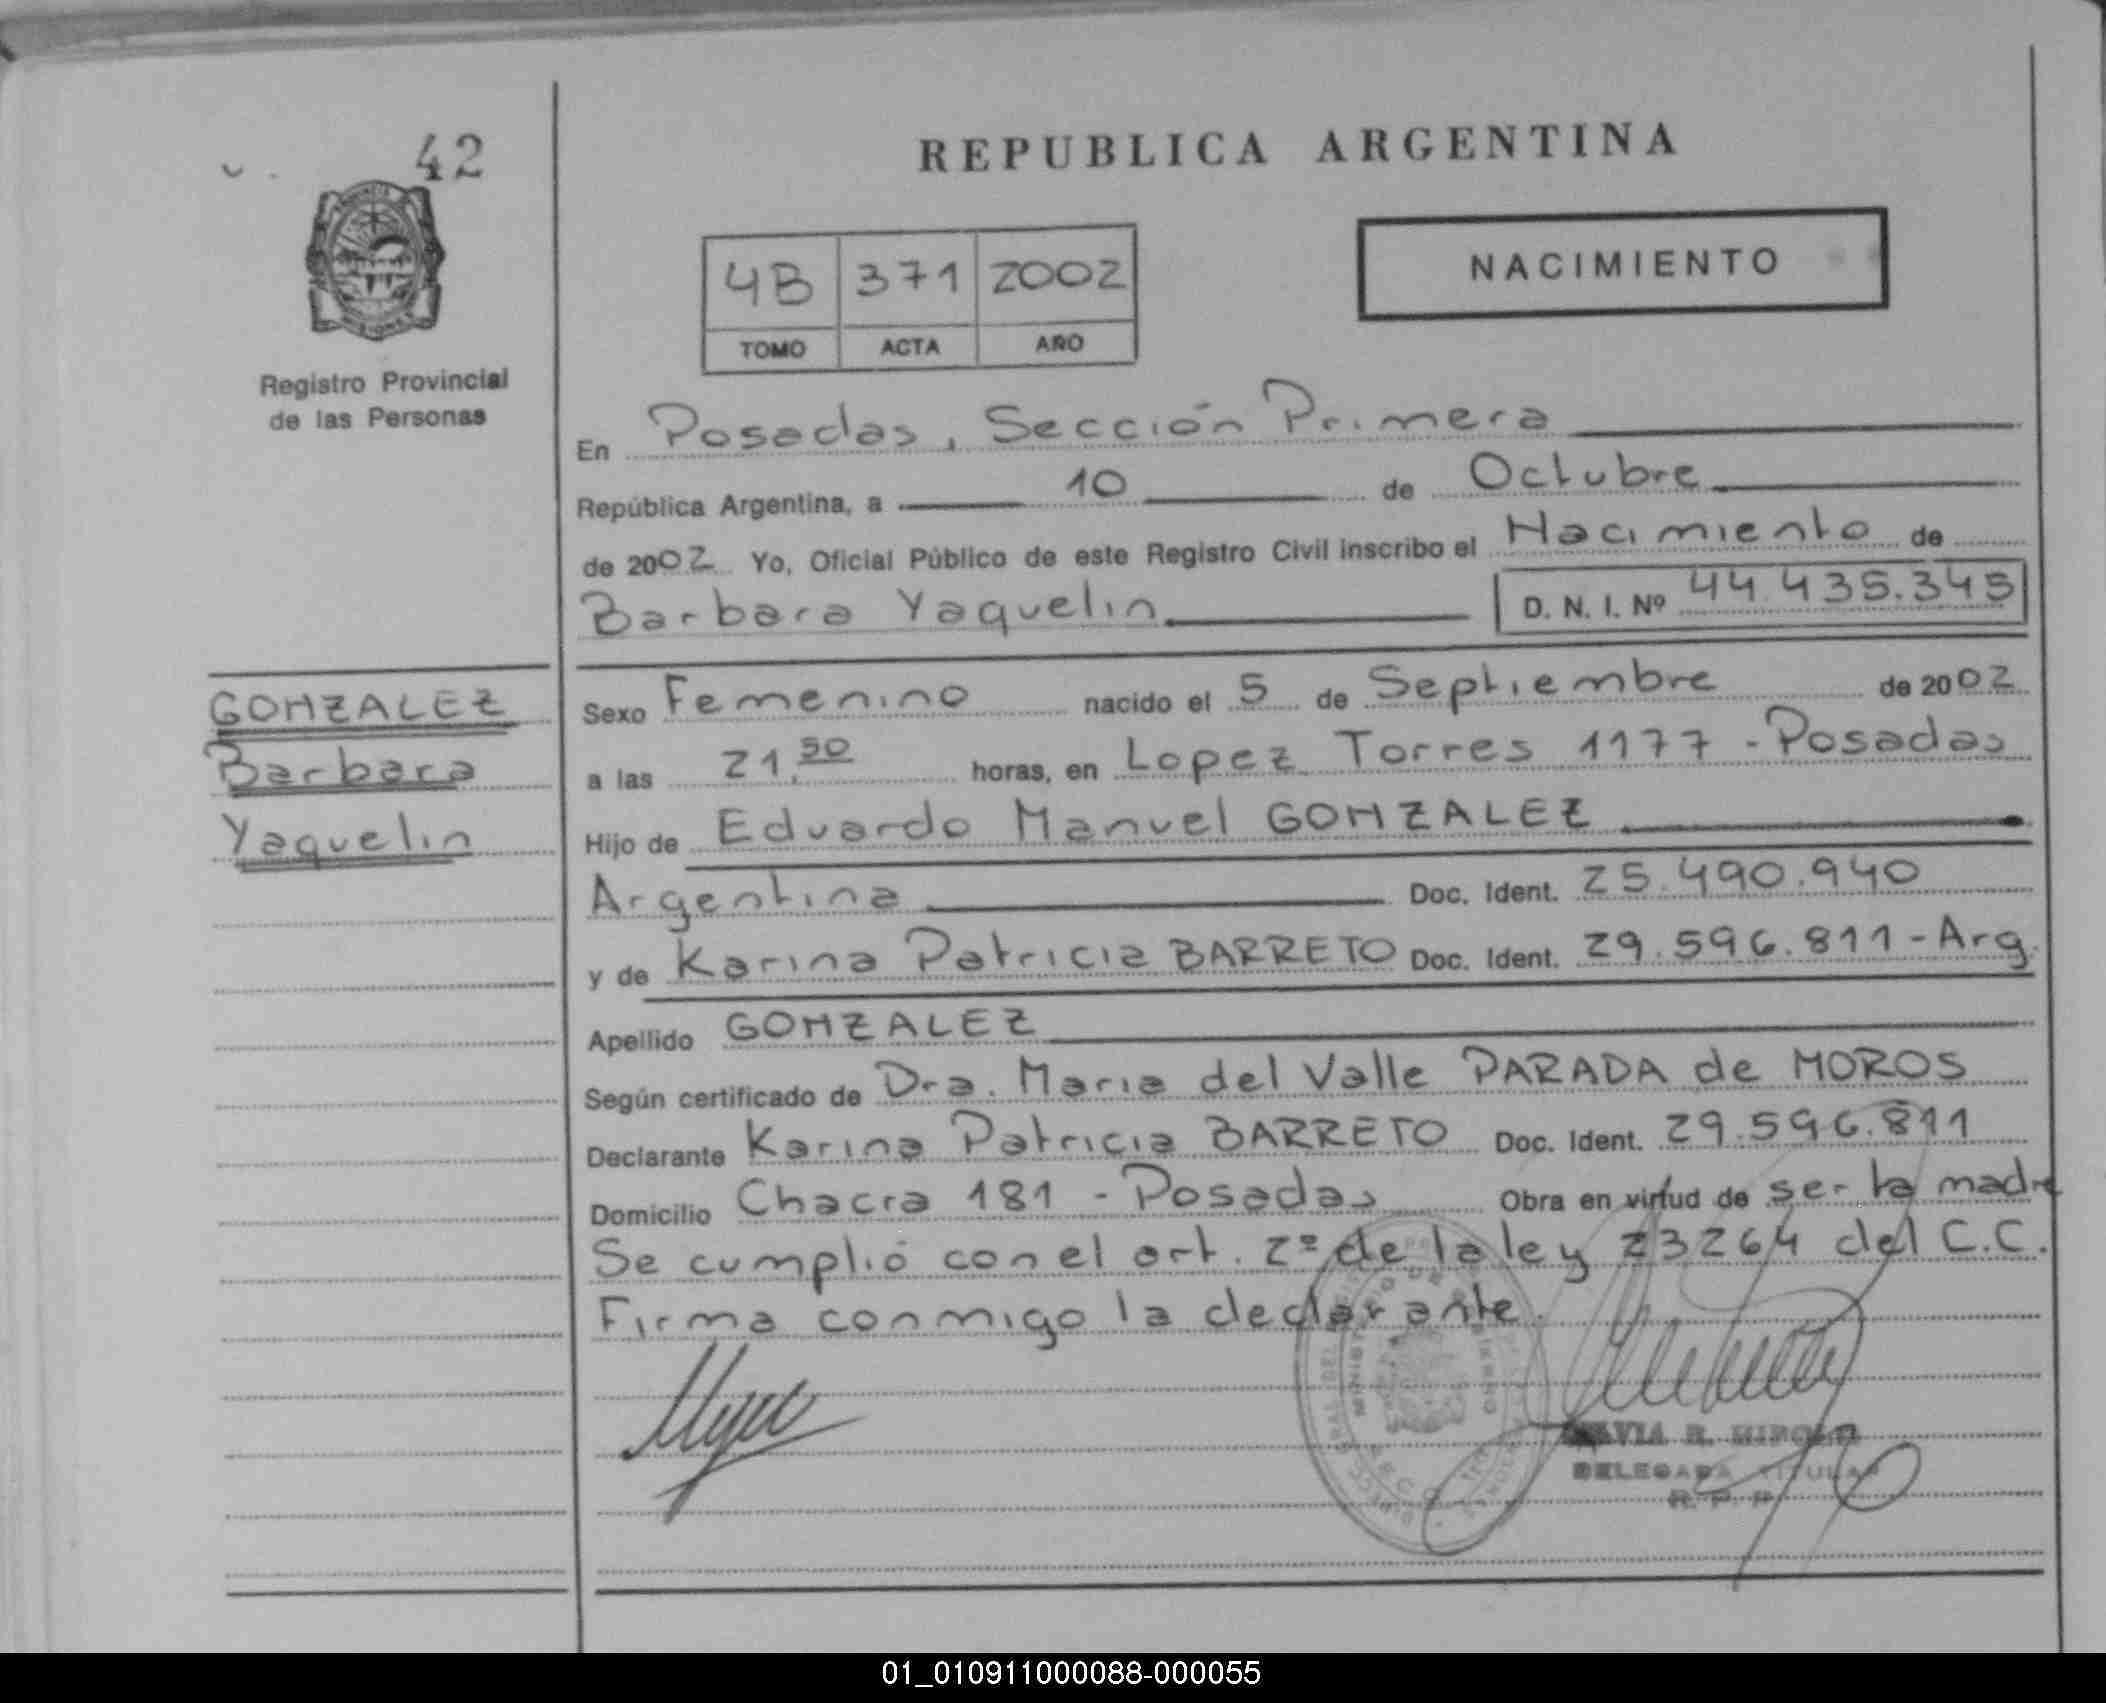 42
REPUBLICA ARGENTINA
NACIMIENTO
4B 371 2002
TOMO ACTA AÑO
Registro Provincial
de las Personas
En Posadas, Sección Primera
República Argentina, a 10 de Octubre
de 2002 Yo, Oficial Público de este Registro Civil inscribo el Nacimiento de
Barbara Yaquelin D. N. I. Nº 44.435.345
GONZALEZ
Barbara
Yaquelin
Sexo Femenino nacido el 5 de Septiembre de 2002
a las 21,50 horas, en Lopez Torres 1177 - Posadas
Hijo de Eduardo Manuel GONZALEZ
Argentina Doc. Ident. 25.490.940
y de Karina Patricia BARRETO Doc. Ident. 29.596.811 - Arg.
Apellido GONZALEZ
Según certificado de Dra. Maria del Valle PARADA de MOROS
Declarante Karina Patricia BARRETO Doc. Ident. 29.596.811
Domicilio Chacra 181 - Posadas Obra en virtud de ser la madre
Se cumplió con el art. 2º de la ley 23264 del C.C.
Firma conmigo la declarante.
DELEGADA TITULAR
R. P. P.
01_010911000088-000055